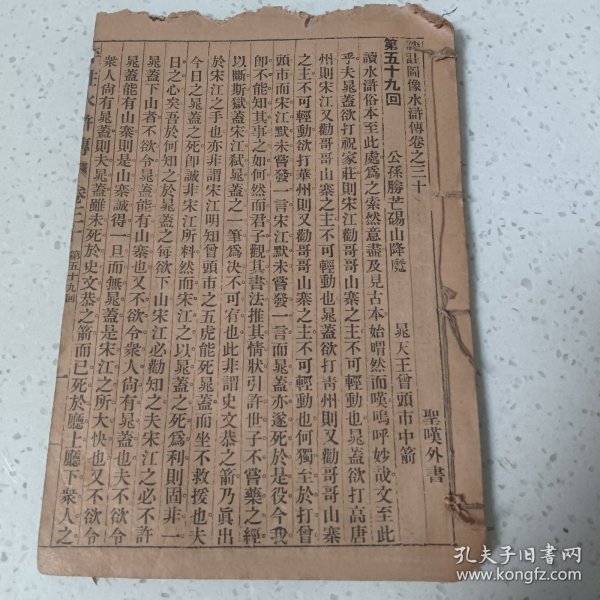 評註圖像水滸傳卷之三十
聖嘆外書
第五十九回　公孫勝芒碭山降魔　晁天王曾頭市中箭
讀水滸俗本至此處爲之索然意盡及見古本始喟然而嘆嗚呼妙哉文至此
乎夫晁蓋欲打祝家莊則宋江勸哥哥山寨之主不可輕動也晁蓋欲打高唐
州則宋江又勸哥哥山寨之主不可輕動也晁蓋欲打青州則又勸哥哥山寨
之主不可輕動欲打華州則又勸哥哥山寨之主不可輕動也何獨至於打曾
頭市而宋江默未嘗發一言宋江默未嘗發一言而晁蓋亦遂死於是役今我
卽不能知其事之如何然而君子觀其書法推其情狀引許世子不嘗藥之經
以斷斯獄蓋宋江弒晁蓋之一筆爲決不可宥也此非謂史文恭之箭乃眞出
於宋江之手也亦非謂宋江明知曾頭市之五虎能死晁蓋而坐不救援也夫
今日之晁蓋之死卽誠非宋江所料然而宋江之以晁蓋之死爲利則固非一
日之心矣吾於何知之於晁蓋之每欲下山宋江必勸知之夫宋江之必不許
晁蓋下山者不欲令晁蓋能有山寨也又不欲令衆人尙有晁蓋也夫不欲令
晁蓋能有山寨則是山寨誠得一旦而無晁蓋是宋江之所大快也又不欲令
衆人尙有晁蓋則夫晁蓋雖未死於史文恭之箭而已死於廳上廳下衆人之
水滸傳　卷三十　第五十九回
孔夫子旧书网
www.kongfz.com